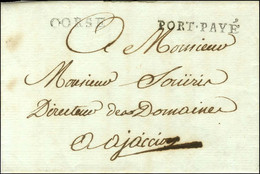 CORSE PORT·PAYÉ
A Monsieur
Monsieur Souiris
Directeur des Domaines
a ajaccio